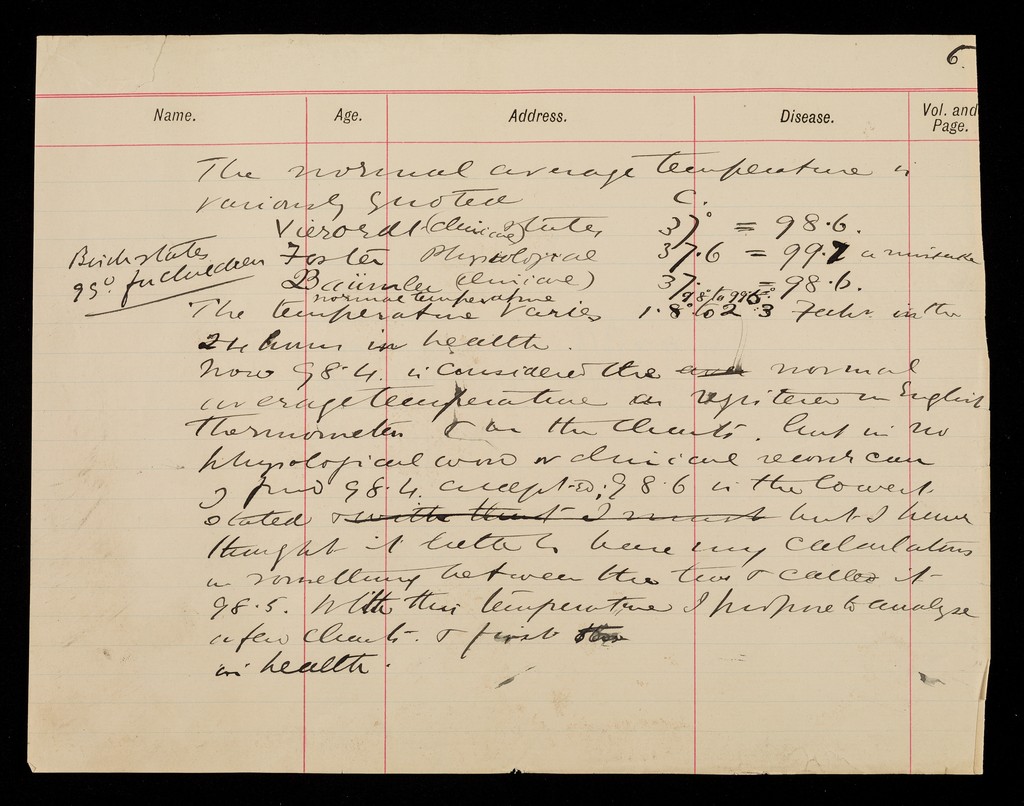 6.
Name. Age. Address. Disease. Vol. and Page.
The normal average temperature is
variously quoted C.
Vierordt (clinical) states 37° = 98.6.
Birch states
99° for children
Foster Physiological 37.6 = 99.7 a mistake
Baümler (clinical) 37. = 98.6.
normal temperature 98° to 99.5°
The temperature varies 1.8° to 2 3 Fahr. in the
24 hours in health.
Now 98.4. is considered the normal
average temperature as registered on English
thermometers & on the charts. but in no
physiological work or clinical record can
I find 98.4. accepted; 98.6 is the lowest
stated & with that I must but I have
thought it better to base my calculations
on something between the two & called it
98.5. With this temperature I propose to analyse
a few charts. & first
in health.